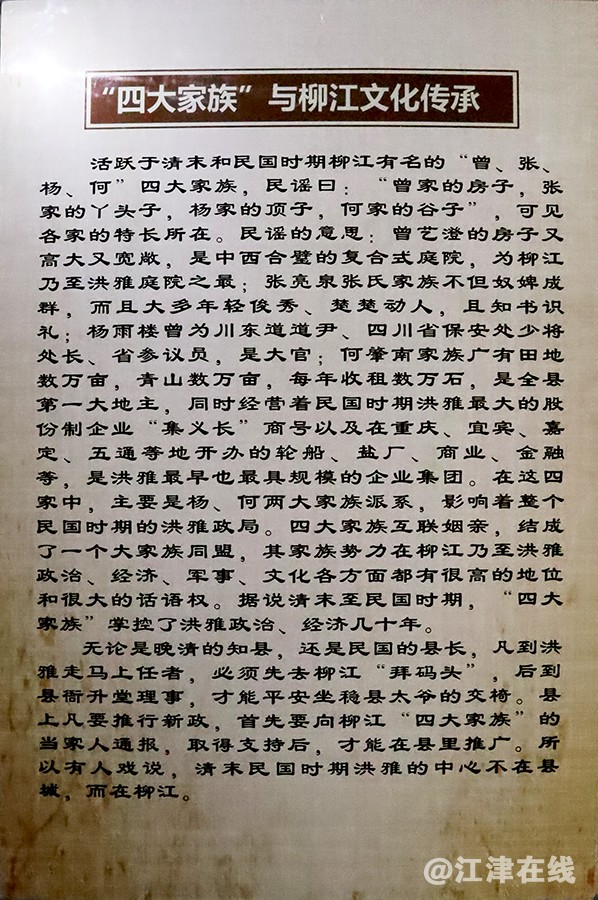 “四大家族”与柳江文化传承
活跃于清末和民国时期柳江有名的“曾、张、
杨、何”四大家族，民谣曰：“曾家的房子，张
家的丫头子，杨家的顶子，何家的谷子”，可见
各家的特长所在。民谣的意思：曾艺澄的房子又
高大又宽敞，是中西合璧的复合式庭院，为柳江
乃至洪雅庭院之最；张亮泉张氏家族不但奴婢成
群，而且大多年轻俊秀、楚楚动人，且知书识
礼；杨雨楼曾为川东道道尹、四川省保安处少将
处长、省参议员，是大官；何肇南家族广有田地
数万亩，青山数万亩，每年收租数万石，是全县
第一大地主，同时经营着民国时期洪雅最大的股
份制企业“集义长”商号以及在重庆、宜宾、嘉
定、五通等地开办的轮船、盐厂、商业、金融
等，是洪雅最早也最具规模的企业集团。在这四
家中，主要是杨、何两大家族派系，影响着整个
民国时期的洪雅政局。四大家族互联姻亲，结成
了一个大家族同盟，其家族势力在柳江乃至洪雅
政治、经济、军事、文化各方面都有很高的地位
和很大的话语权。据说清末至民国时期，“四大
家族”掌控了洪雅政治、经济几十年。
无论是晚清的知县，还是民国的县长，凡到洪
雅走马上任者，必须先去柳江“拜码头”，后到
县衙升堂理事，才能平安坐稳县太爷的交椅。县
上凡要推行新政，首先要向柳江“四大家族”的
当家人通报，取得支持后，才能在县里推广。所
以有人戏说，清末民国时期洪雅的中心不在县
城，而在柳江。
@江津在线